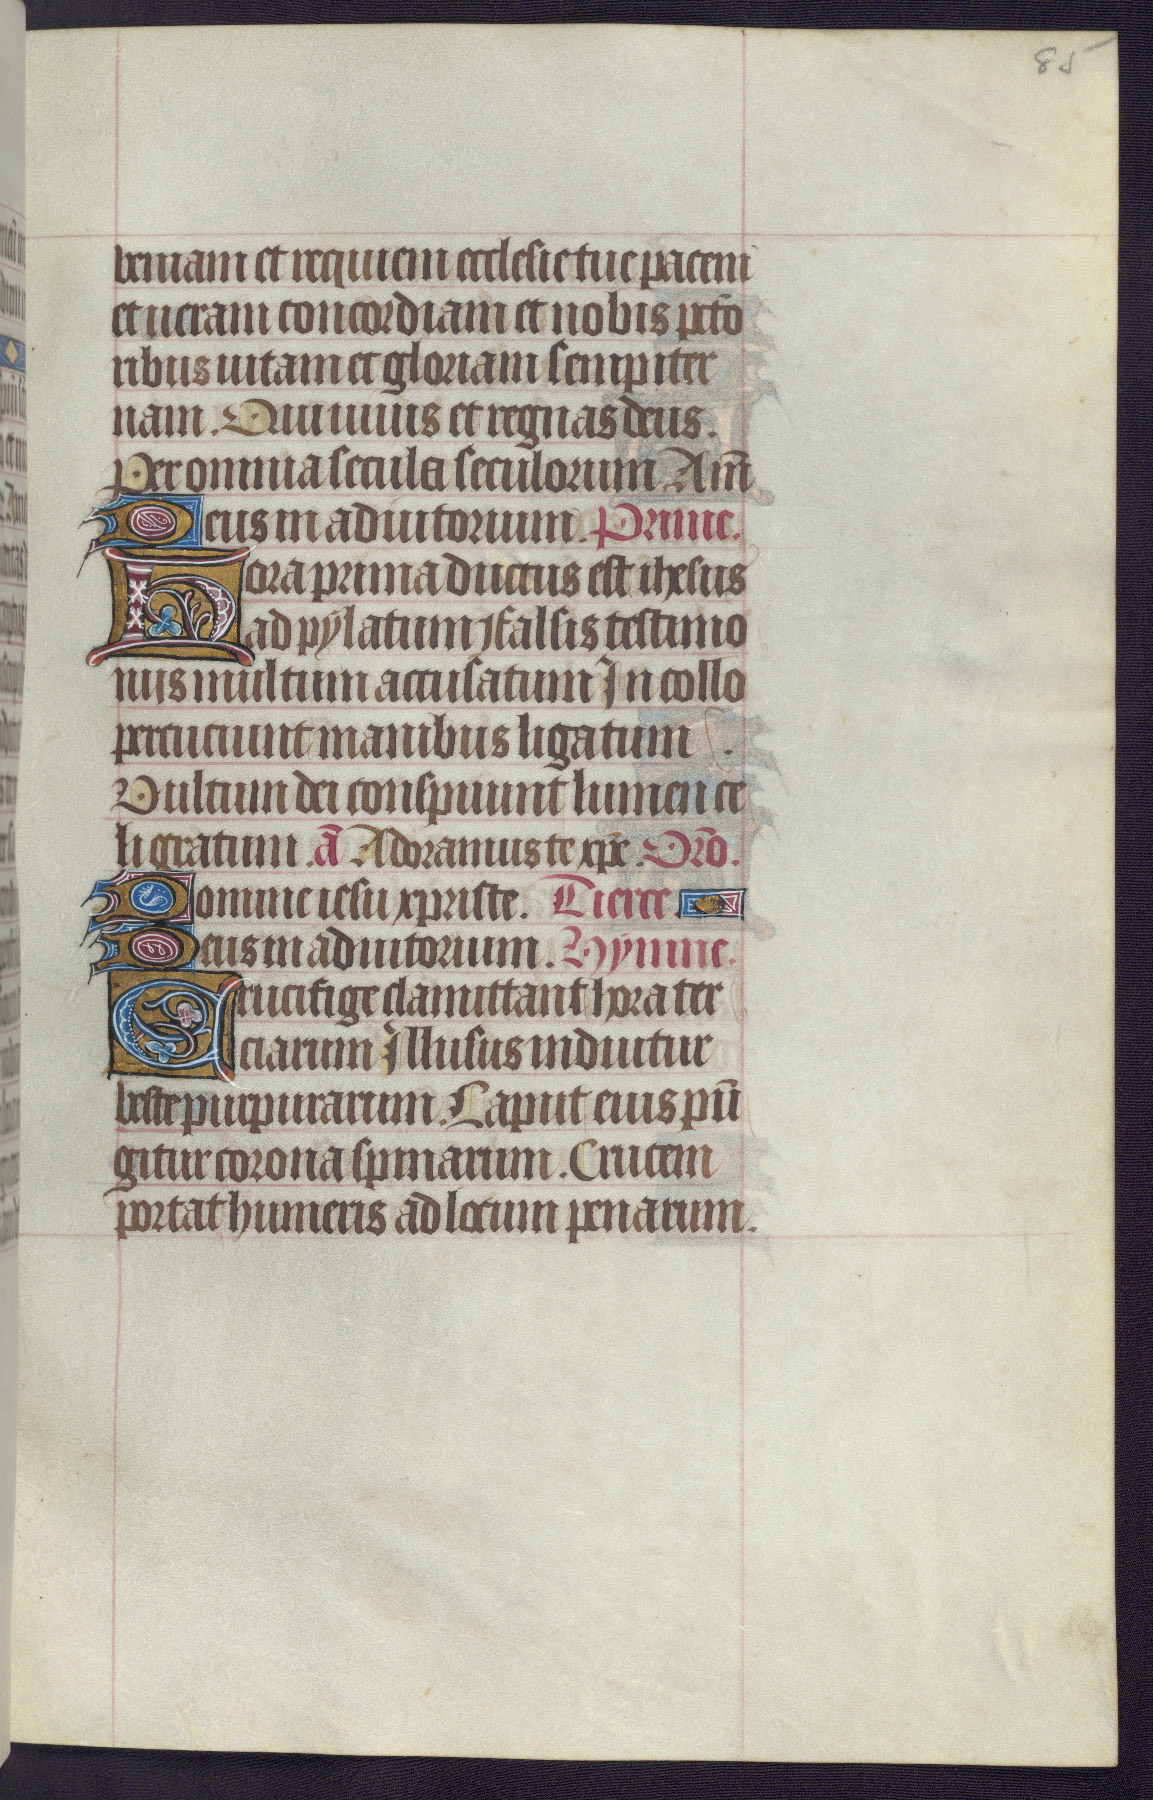 85
veniam et requiem ecclesie tue pacem
et ueram concordiam et nobis pctō
ribus uitam et gloriam sempiter
nam. Qui uiuis et regnas deus.
Per omnia secula seculorum Am̄
Deus in adiutorium. Prime.
Hora prima ductus est ihesus
ad pylatum falsis testimo
niis multum accusatum In collo
percuciunt manibus ligatum
Vultum dei conspuunt lumen ce
li gratum. ā Adoramus te xp̄e. Orō.
Domine iesu xpriste. Tierce.
Deus in adiutorium. Hymne.
Crucifige clamittant hora ter
ciarum Illusus induitur
veste purpurarum. Caput eius pū
gitur corona spinarum. Crucem
portat humeris ad locum penarum.